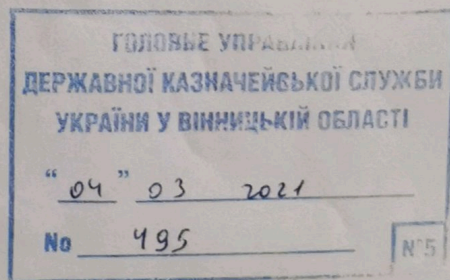 ГОЛОВНЕ УПРАВЛІННЯ
ДЕРЖАВНОЇ КАЗНАЧЕЙСЬКОЇ СЛУЖБИ
УКРАЇНИ У ВІННИЦЬКІЙ ОБЛАСТІ
“04” 03 2021
No 495
N°5